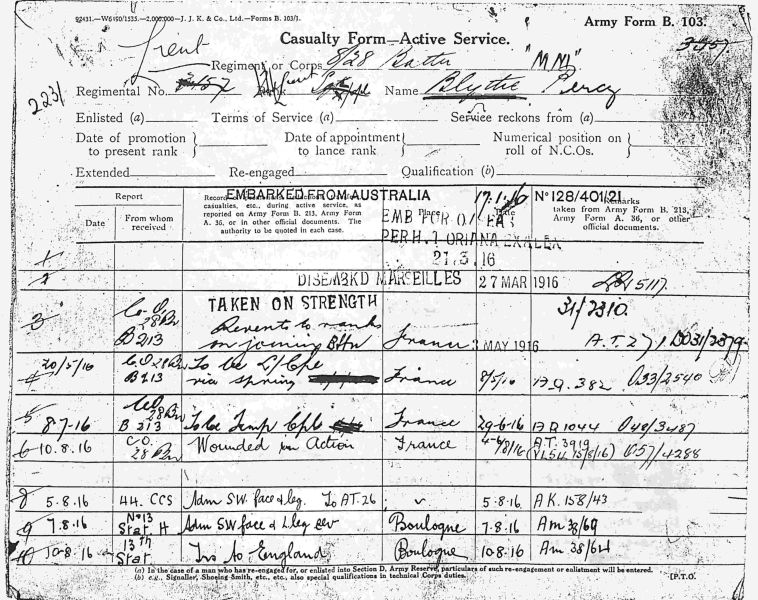 22431.—W6190/1535.—2,000,000—J. J. K. & Co., Ltd.—Forms B. 103/1.
Army Form B. 103.
Casualty Form—Active Service.
Regiment or Corps 8/28 Battn
2231
Regimental No. 3457 Name Blythe Percy
Enlisted (a) Terms of Service (a) Service reckons from (a)
Date of promotion to present rank } Date of appointment to lance rank } Numerical position on roll of N.C.Os. }
Extended Re-engaged Qualification (b)
Report
Date
From whom received
Record of promotions, reductions, transfers, casualties, etc., during active service, as reported on Army Form B. 213, Army Form A. 36, or in other official documents. The authority to be quoted in each case.
Place
Date
Remarks taken from Army Form B. 213, Army Form A. 36, or other official documents.
EMBARKED FROM AUSTRALIA 17.1.16 No 128/401/21
PER H.T ORIANA EX ALEX
21.3.16
DISEMBKD MARSEILLES 27 MAR 1916
TAKEN ON STRENGTH
3 C.O. 28Bn B213 Reverts to ranks on joining Bttn France MAY 1916 31/2310.
20/5/16 C.O 28Bn B213 To be L/Cpl vice France 8/5/16 033/2540
5 8-7-16 CO 28Bn B 213 To be Temp Cpl France 29-6-16 1044 040/3487
6 10.8.16 C.O. 28 Bn Wounded in Action France 4-6/8/16 A.T. 3919 057/4288
8 5.8.16 44. CCS Adm SW. face & leg. To AT.26 5.8.16 A K. 158/43
9 7.8.16 No 13 Stat. H Adm SW. face & L leg sev Boulogne 7.8.16 Am 38/69
10-8.16 13th Stat. Trs to England Boulogne 10.8.16 Am 38/64
(a) In the case of a man who has re-engaged for, or enlisted into Section D, Army Reserve, particulars of such re-engagement or enlistment will be entered.
(b) e.g., Signaller, Shoeing-Smith, etc., etc., also special qualifications in technical Corps duties.
[P.T.O.